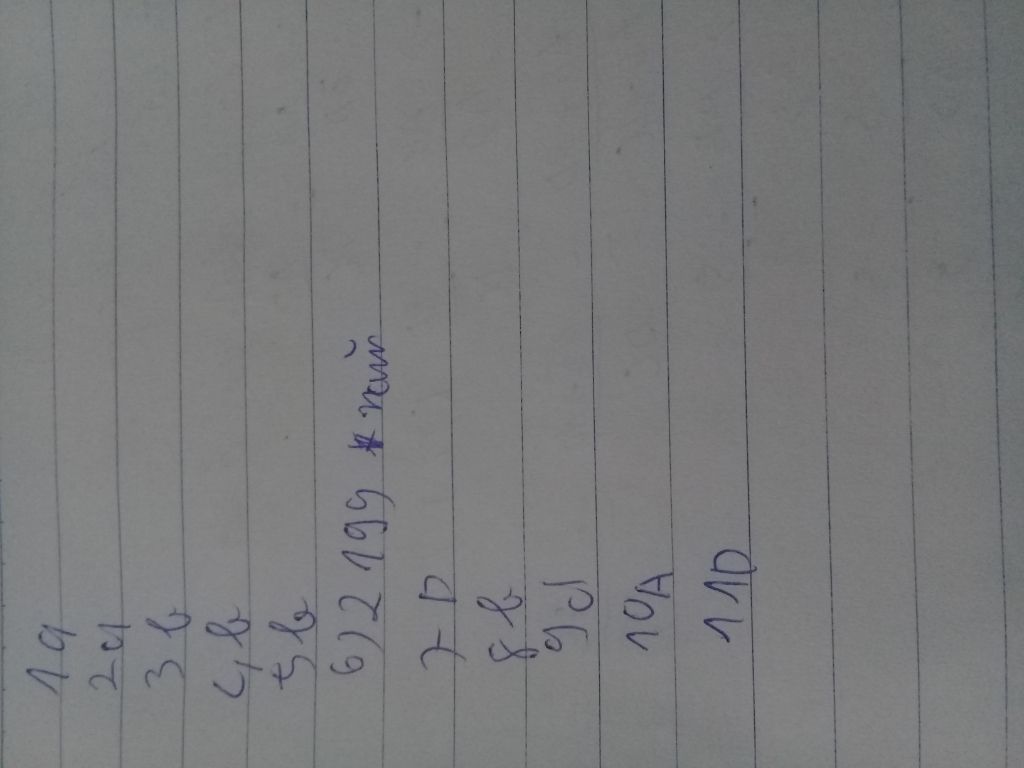 1 a
2 a
3 b
4 b
5 b
6) 2 199
7 D
8 b
9 d
10 A
11 D